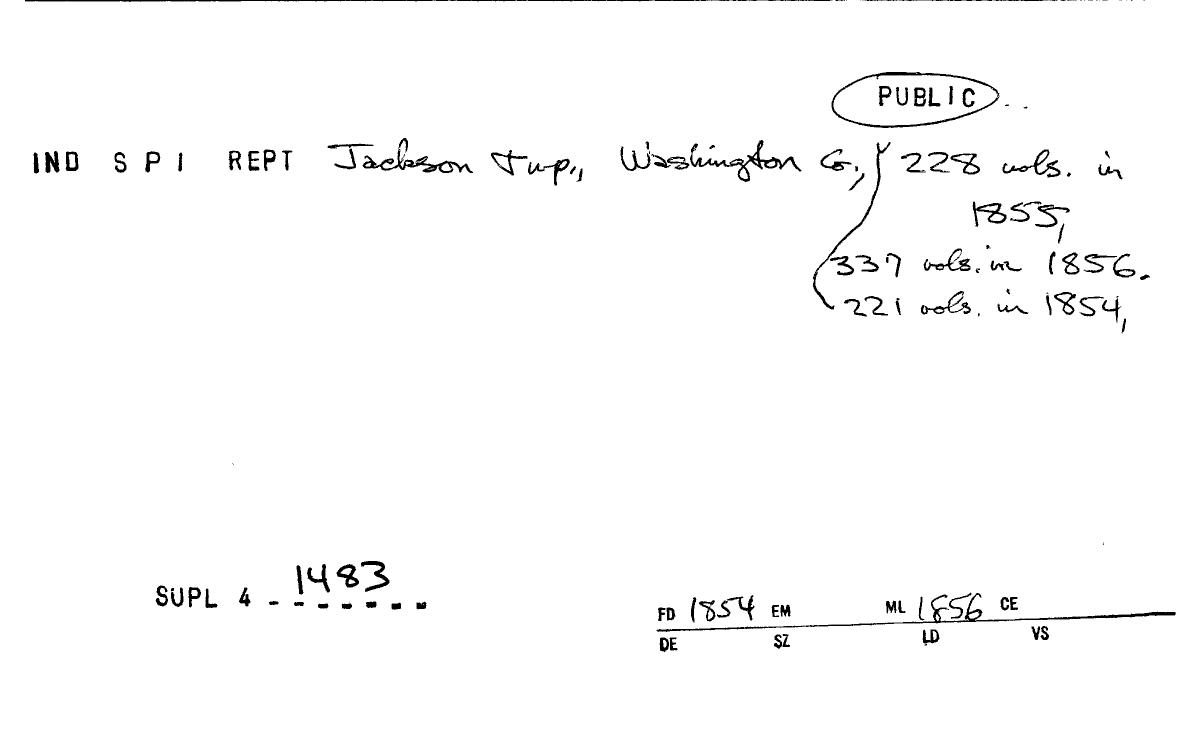 PUBLIC . .
IND S P I REPT Jackson Twp., Washington Co., 228 vols. in
1855,
337 vols. in 1856.
221 vols. in 1854,
1483
SUPL 4 - - - - - - -
FD 1854 EM ML 1856 CE
DE SZ LD VS